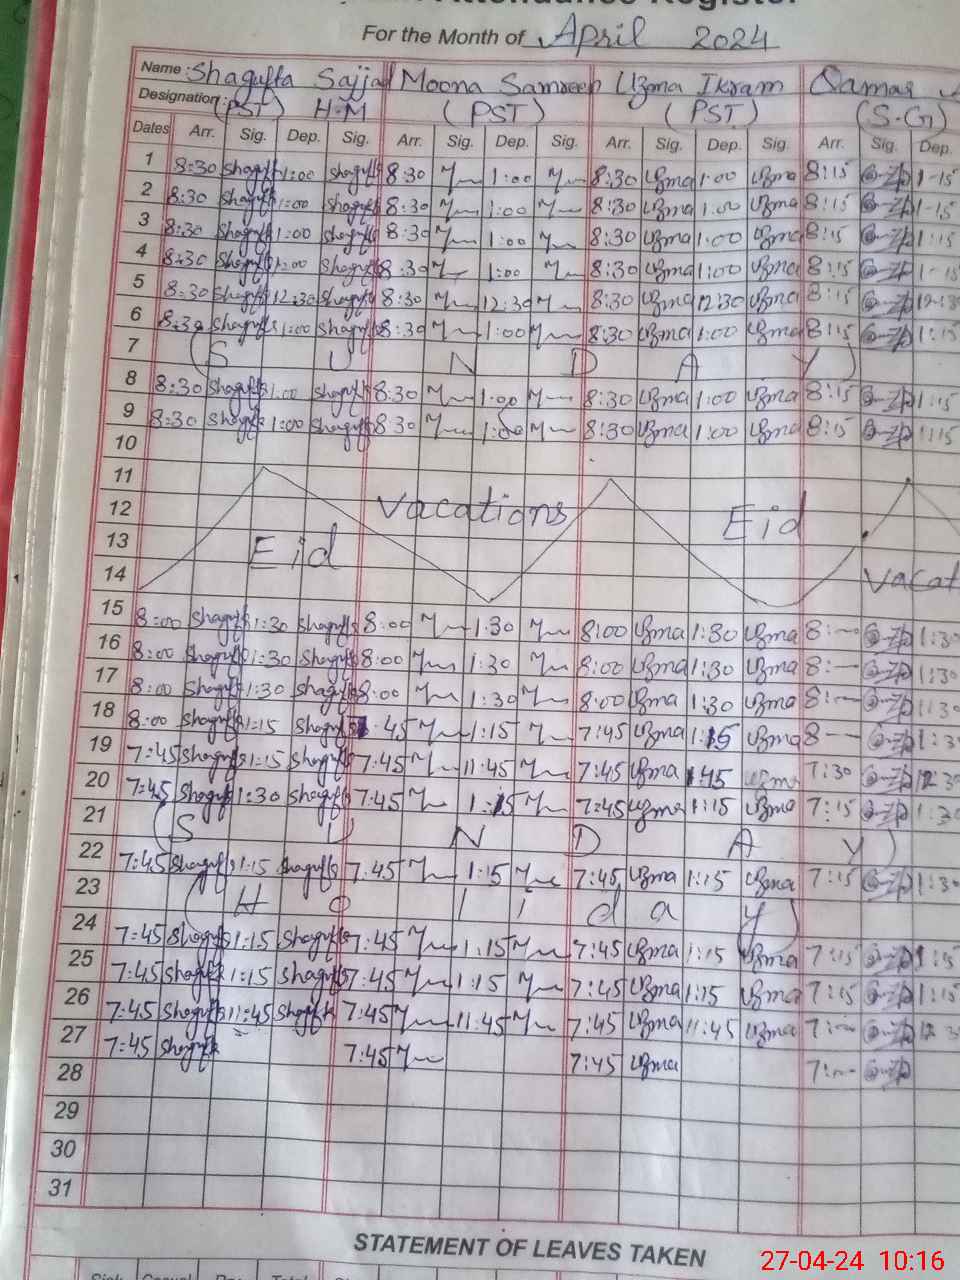 Attendance Register
For the Month of April 2024
Name: Shagufta Sajjad Moona Samreen Uzma Ikram Qamar
Designation: (PST) H.M (PST) (PST) (S.G)
Dates Arr. Sig. Dep. Sig. Arr. Sig. Dep. Sig. Arr. Sig. Dep. Sig. Arr. Sig. Dep.
1 8:30 Shagufta 1:00 Shagufta 8:30 1:00 8:30 Uzma 1:00 Uzma 8:15 1-15
2 8:30 Shagufta 1:00 Shagufta 8:30 1:00 8:30 Uzma 1:00 Uzma 8:15 1-15
3 8:30 Shagufta 1:00 Shagufta 8:30 1:00 8:30 Uzma 1:00 Uzma 8:15 1:15
4 8:30 Shagufta 1:00 Shagufta 8:30 1:00 8:30 Uzma 1:00 Uzma 8:15 1-15
5 8:30 Shagufta 12:30 Shagufta 8:30 12:30 8:30 Uzma 12:30 Uzma 8:15
6 8:30 Shagufta 1:00 Shagufta 8:30 1:00 8:30 Uzma 1:00 Uzma 8:15 1:15
7 (S U N D A Y)
8 8:30 Shagufta 1:00 Shagufta 8:30 1:00 8:30 Uzma 1:00 Uzma 8:15 1:15
9 8:30 Shagufta 1:00 Shagufta 8:30 1:00 8:30 Uzma 1:00 Uzma 8:15 1:15
10
11
12 Vacations Eid
13 Eid
14 Vacat
15 8:00 Shagufta 1:30 Shagufta 8:00 1:30 8:00 Uzma 1:30 Uzma 8:— 1:30
16 8:00 Shagufta 1:30 Shagufta 8:00 1:30 8:00 Uzma 1:30 Uzma 8:— 1:30
17 8:00 Shagufta 1:30 Shagufta 8:00 1:30 8:00 Uzma 1:30 Uzma 8:— 1:30
18 8:00 Shagufta 1:15 Shagufta :45 1:15 7:45 Uzma 1:15 Uzma 8— 1:3
19 7:45 Shagufta 1:15 Shagufta 7:45 11:45 7:45 Uzma :45 Uzma 7:30 12:30
20 7:45 Shagufta 1:30 Shagufta 7:45 1:15 7:45 Uzma 1:15 Uzma 7:15 1:30
21 (S U N D A Y)
22 7:45 Shagufta 1:15 Shagufta 7:45 1:15 7:45 Uzma 1:15 Uzma 7:15 1:30
23 (H o l i d a y)
24 7:45 Shagufta 1:15 Shagufta 7:45 1:15 7:45 Uzma 1:15 Uzma 7:15 1:15
25 7:45 Shagufta 1:15 Shagufta 7:45 1:15 7:45 Uzma 1:15 Uzma 7:15 1:15
26 7:45 Shagufta 11:45 Shagufta 7:45 11:45 7:45 Uzma 11:45 Uzma 7:— 12:30
27 7:45 Shagufta 7:45 7:45 Uzma 7:—
28
29
30
31
STATEMENT OF LEAVES TAKEN
27-04-24 10:16